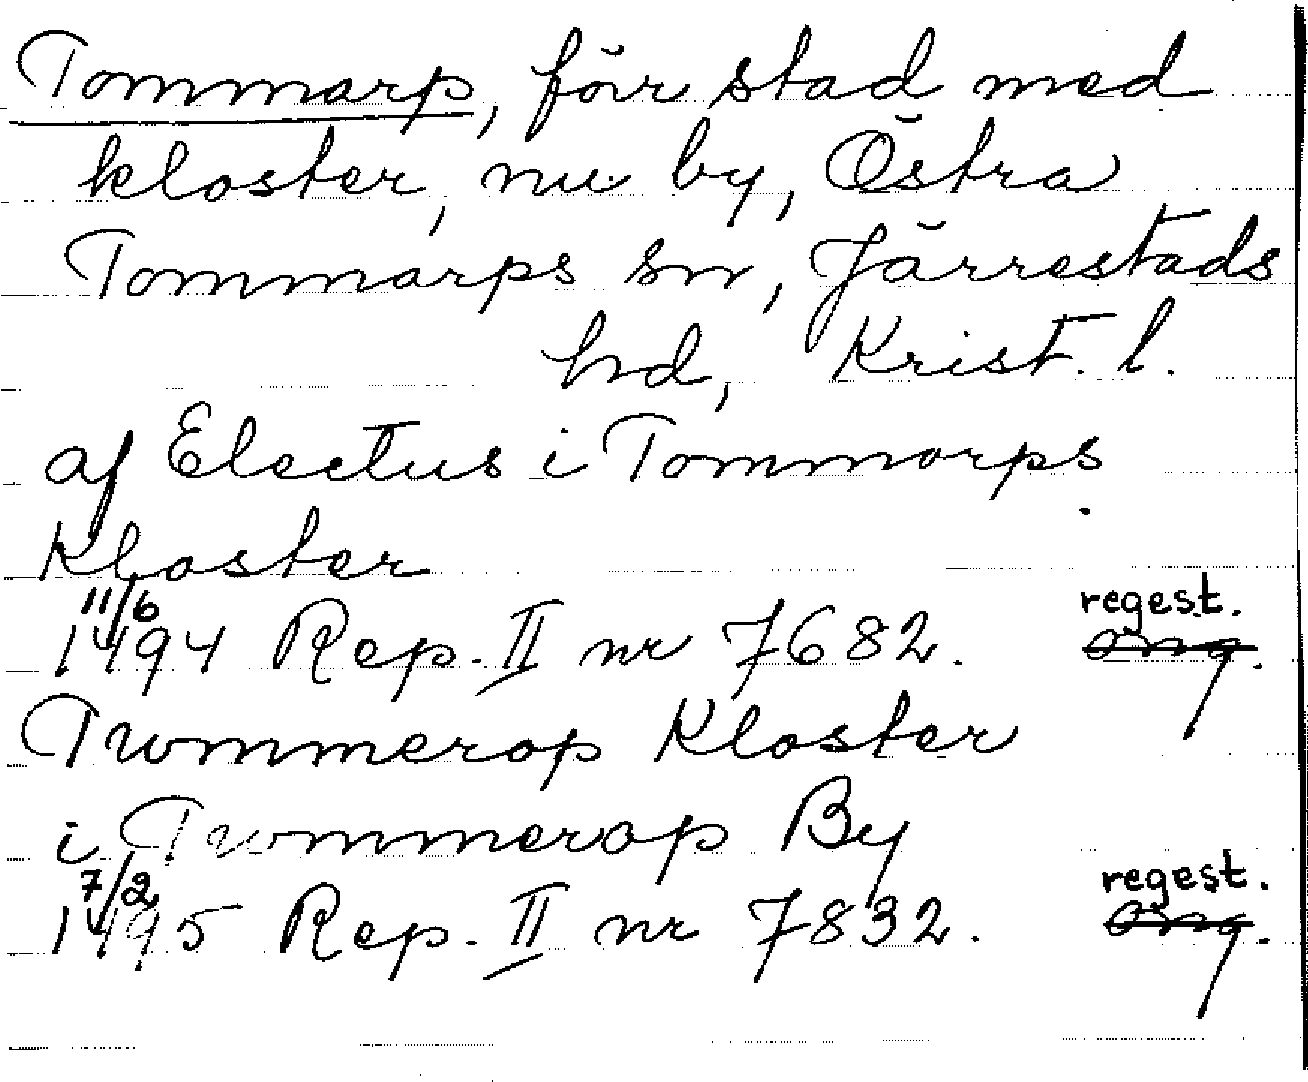 Tommarp, förr stad med
kloster, nu by, Östra
Tommarps sn, Järrestads
hd, Krist. l.
af Electus i Tommarps
Kloster
11/6 regest.
1494 Rep. II nr 7682. Orig.
Twmmerop Kloster
i Twmmerop By
7/2 regest.
1495 Rep. II nr 7832. Orig.